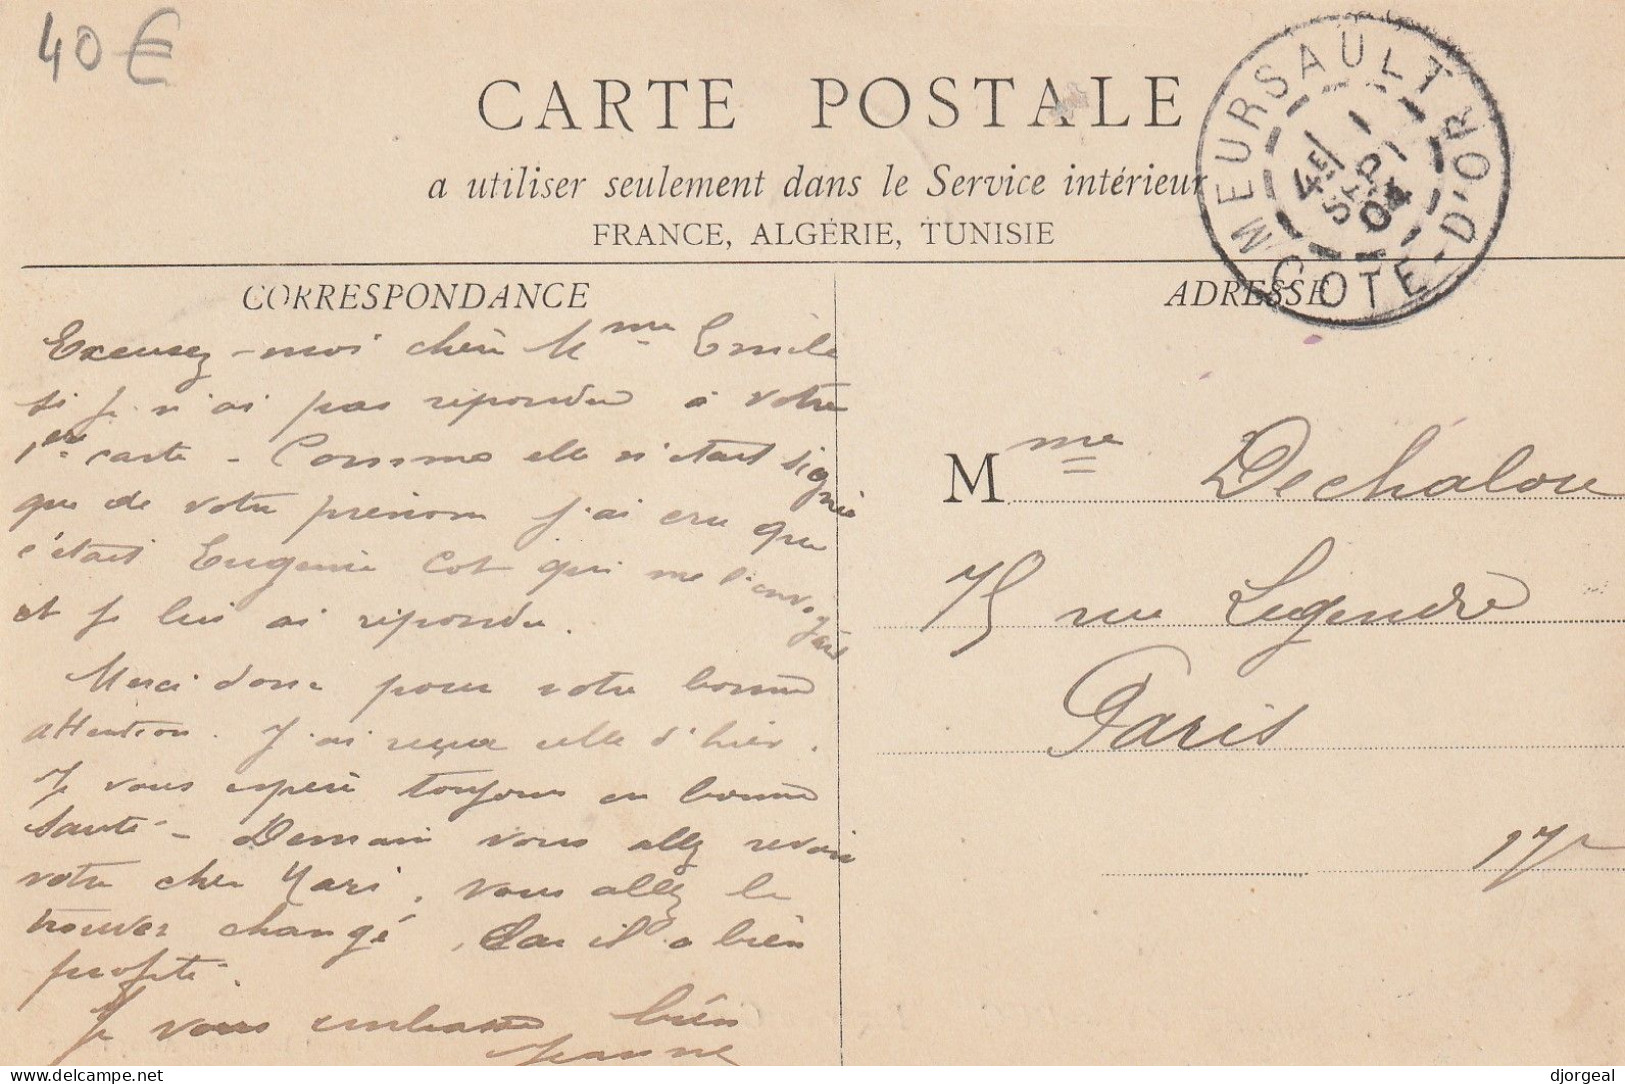 40 €
CARTE POSTALE
a utiliser seulement dans le Service intérieur
FRANCE, ALGÉRIE, TUNISIE
MEURSAULT
4E
1
SEPT
04
COTE-D'OR
CORRESPONDANCE
ADRESSE
Excusez-moi chère Mme Emile
si je n'ai pas répondu à votre
1ère carte - Comme elle n'était signée
que de votre prénom j'ai cru que
c'était Eugénie Cot qui me l'envoyait
et je lui ai répondu.
Merci donc pour votre bonne
attention. J'ai reçue celle d'hier.
Je vous espère toujours en bonne
santé - Demain vous allez revoir
votre cher Mari, vous allez le
trouver changé, Car il a bien
profité.
Je vous embrasse bien
Jeanne
Mme Dechaloux
75 rue Legendre
Paris
17e
delcampe.net
djorgeal